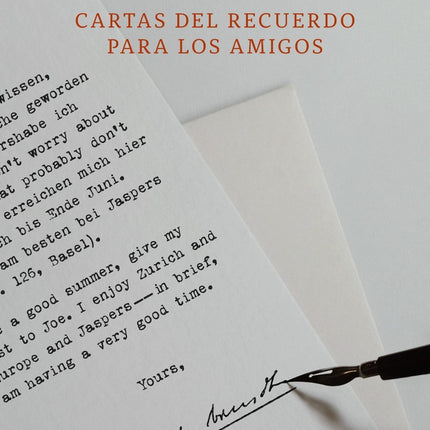 CARTAS DEL RECUERDO
PARA LOS AMIGOS
wissen,
che geworden
rshabe ich
n't worry about
at probably don't
erreichen mich hier
ch bis Ende Juni.
am besten bei Jaspers
. 126, Basel).
e a good summer, give my
st to Joe. I enjoy Zurich and
urope and Jaspers--in brief,
am having a very good time.
Yours,